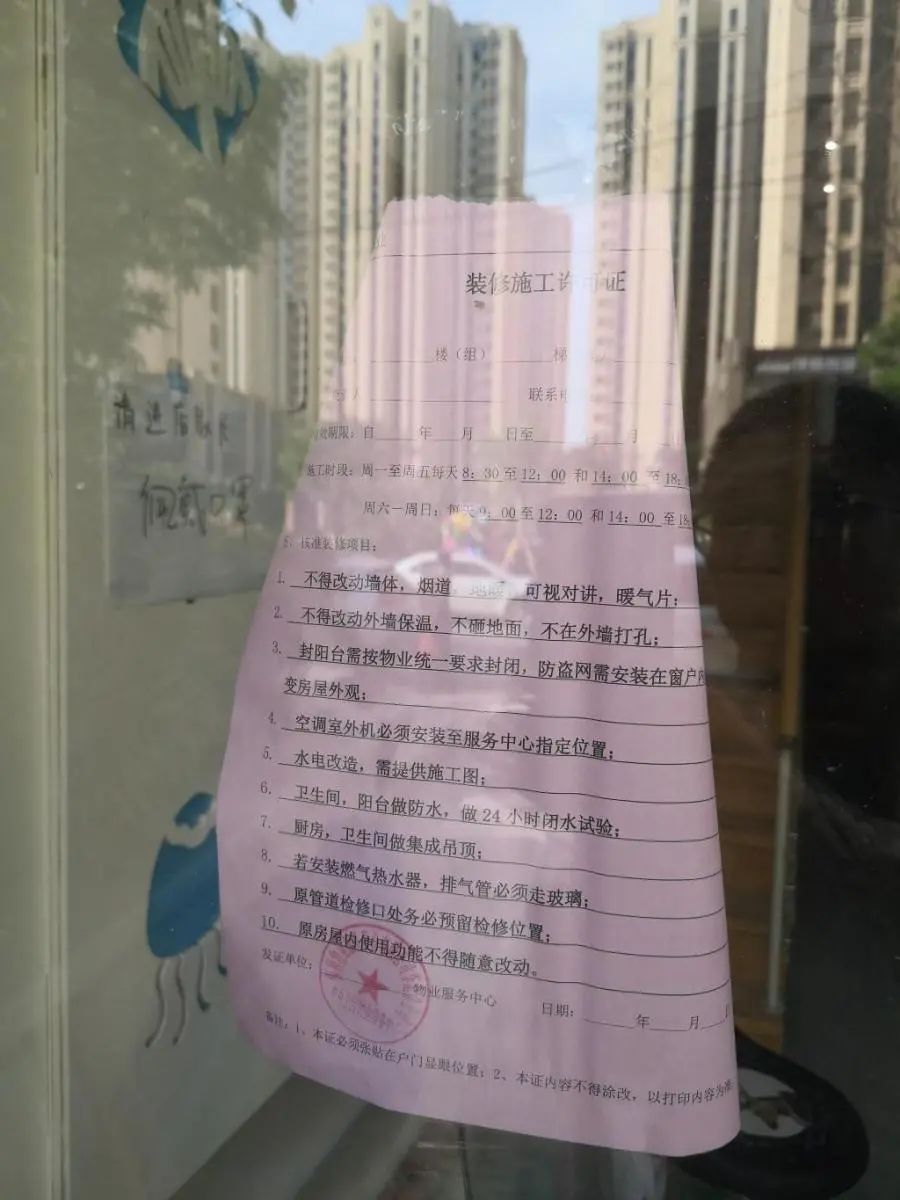 装修施工许可证
楼（组）
联系
效期限：自 年 月 日至 月
施工时段：周一至周五每天8：30至12：00 和14：00 至18：
周六－周日：每天9：00至12：00 和14：00 至18
核准装修项目：
1. 不得改动墙体，烟道，地暖，可视对讲，暖气片；
2. 不得改动外墙保温，不砸地面，不在外墙打孔；
3. 封阳台需按物业统一要求封闭，防盗网需安装在窗户内
变房屋外观；
4. 空调室外机必须安装至服务中心指定位置；
5. 水电改造，需提供施工图；
6. 卫生间，阳台做防水，做24小时闭水试验；
7. 厨房，卫生间做集成吊顶；
8. 若安装燃气热水器，排气管必须走玻璃；
9. 原管道检修口处务必预留检修位置；
10. 原房屋内使用功能不得随意改动。
发证单位： 物业服务中心 日期： 年 月 日
备注：1、本证必须张贴在户门显眼位置；2、本证内容不得涂改，以打印内容为准
请进店
佩戴口罩